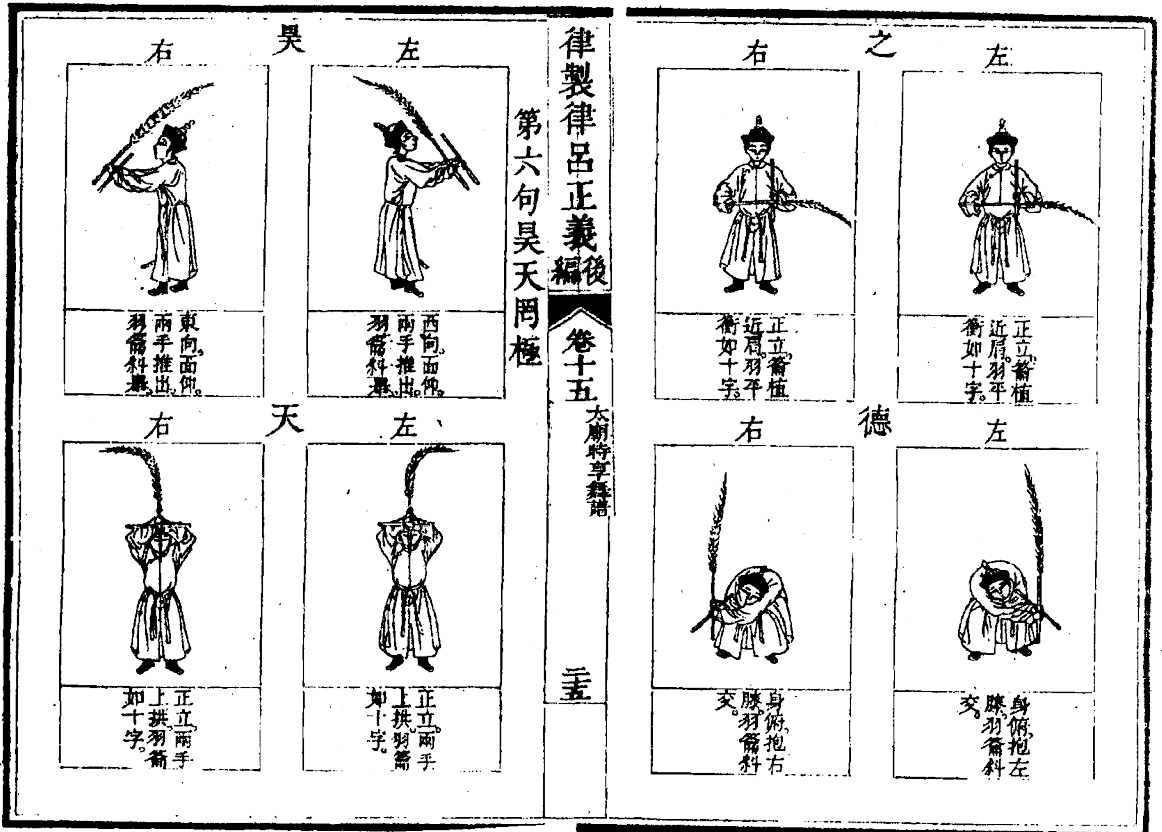 之
左
正立、籥植
近肩。羽平
衡如十字。
右
正立、籥植
近肩。羽平
衡如十字。
德
左
身俯、抱左
膝。羽籥斜
交。
右
身俯、抱右
膝。羽籥斜
交。
律製律呂正義後編
卷十五
太廟時享舞譜
二十五
第六句昊天罔極
昊
左
西向。面仰。
兩手推出。
羽籥斜舉。
右
東向。面仰。
兩手推出。
羽籥斜舉。
天
左
正立。兩手
上拱。羽籥
如十字。
右
正立。兩手
上拱。羽籥
如十字。